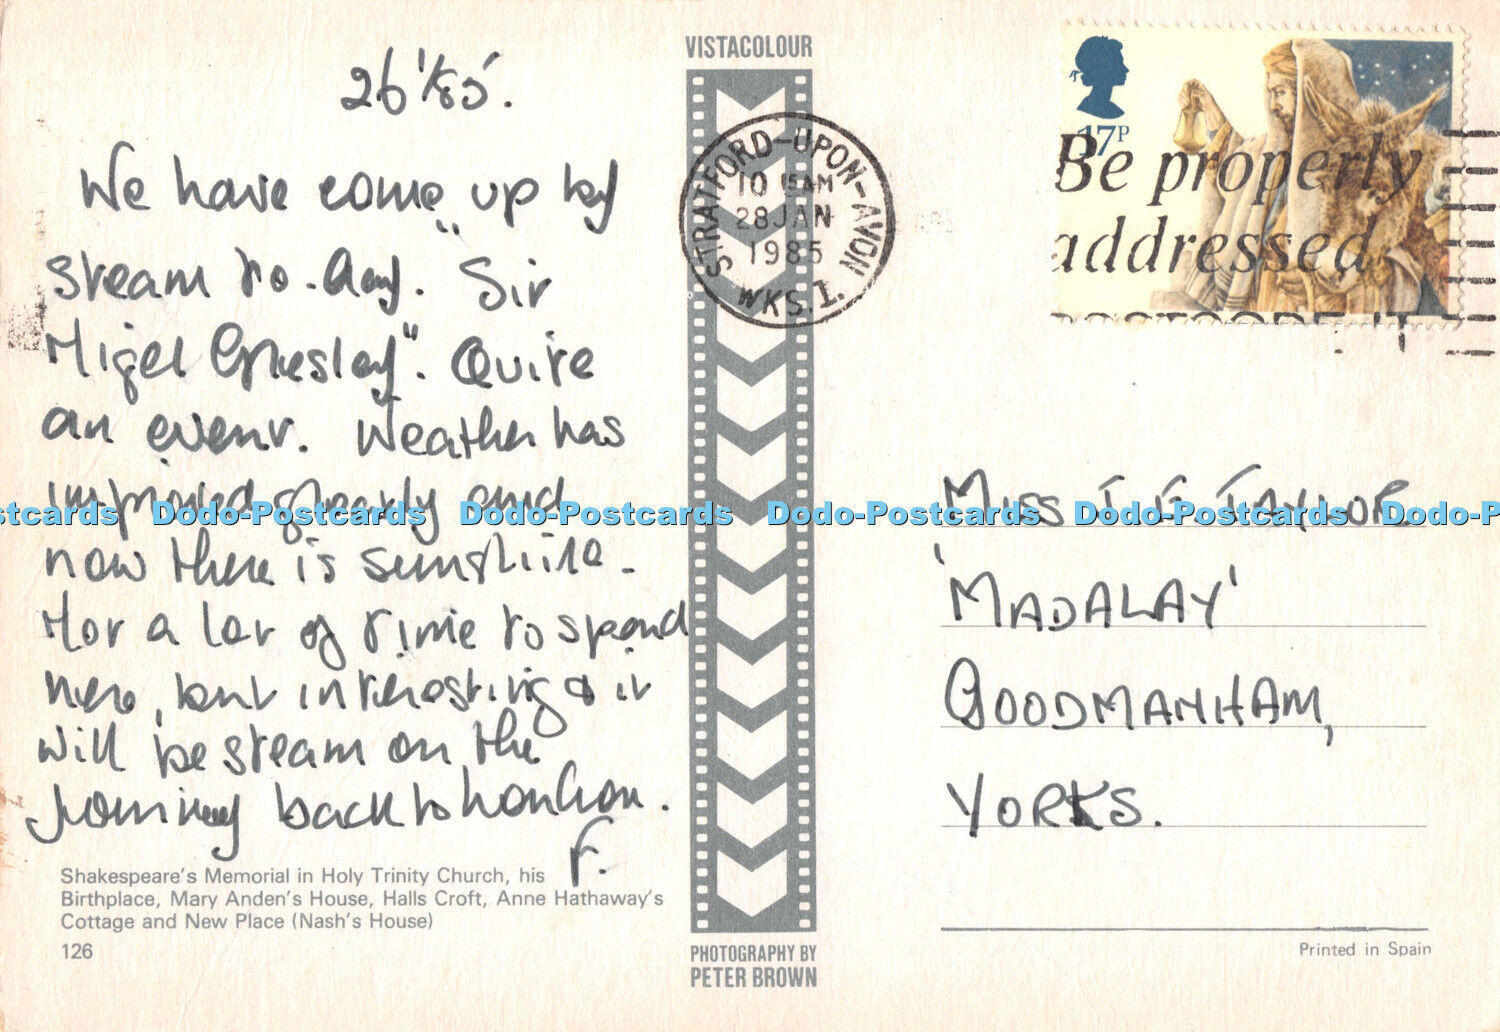 26/1/85.
We have come up by
steam to-day. "Sir
Nigel Gresley". Quite
an event. Weather has
improved greatly and
now there is sunshine.
Not a lot of time to spend
here, but interesting & it
will be steam on the
journey back to London.
F.
Shakespeare's Memorial in Holy Trinity Church, his
Birthplace, Mary Anden's House, Halls Croft, Anne Hathaway's
Cottage and New Place (Nash's House)
126
VISTACOLOUR
PHOTOGRAPHY BY
PETER BROWN
STRATFORD-UPON-AVON
10 15AM
28 JAN
1985
WKS. I.
17P
Be properly
addressed
MISS TAYLOR
'MADALAY'
GOODMANHAM,
YORKS.
Printed in Spain
Dodo-Postcards Dodo-Postcards Dodo-Postcards Dodo-Postcards